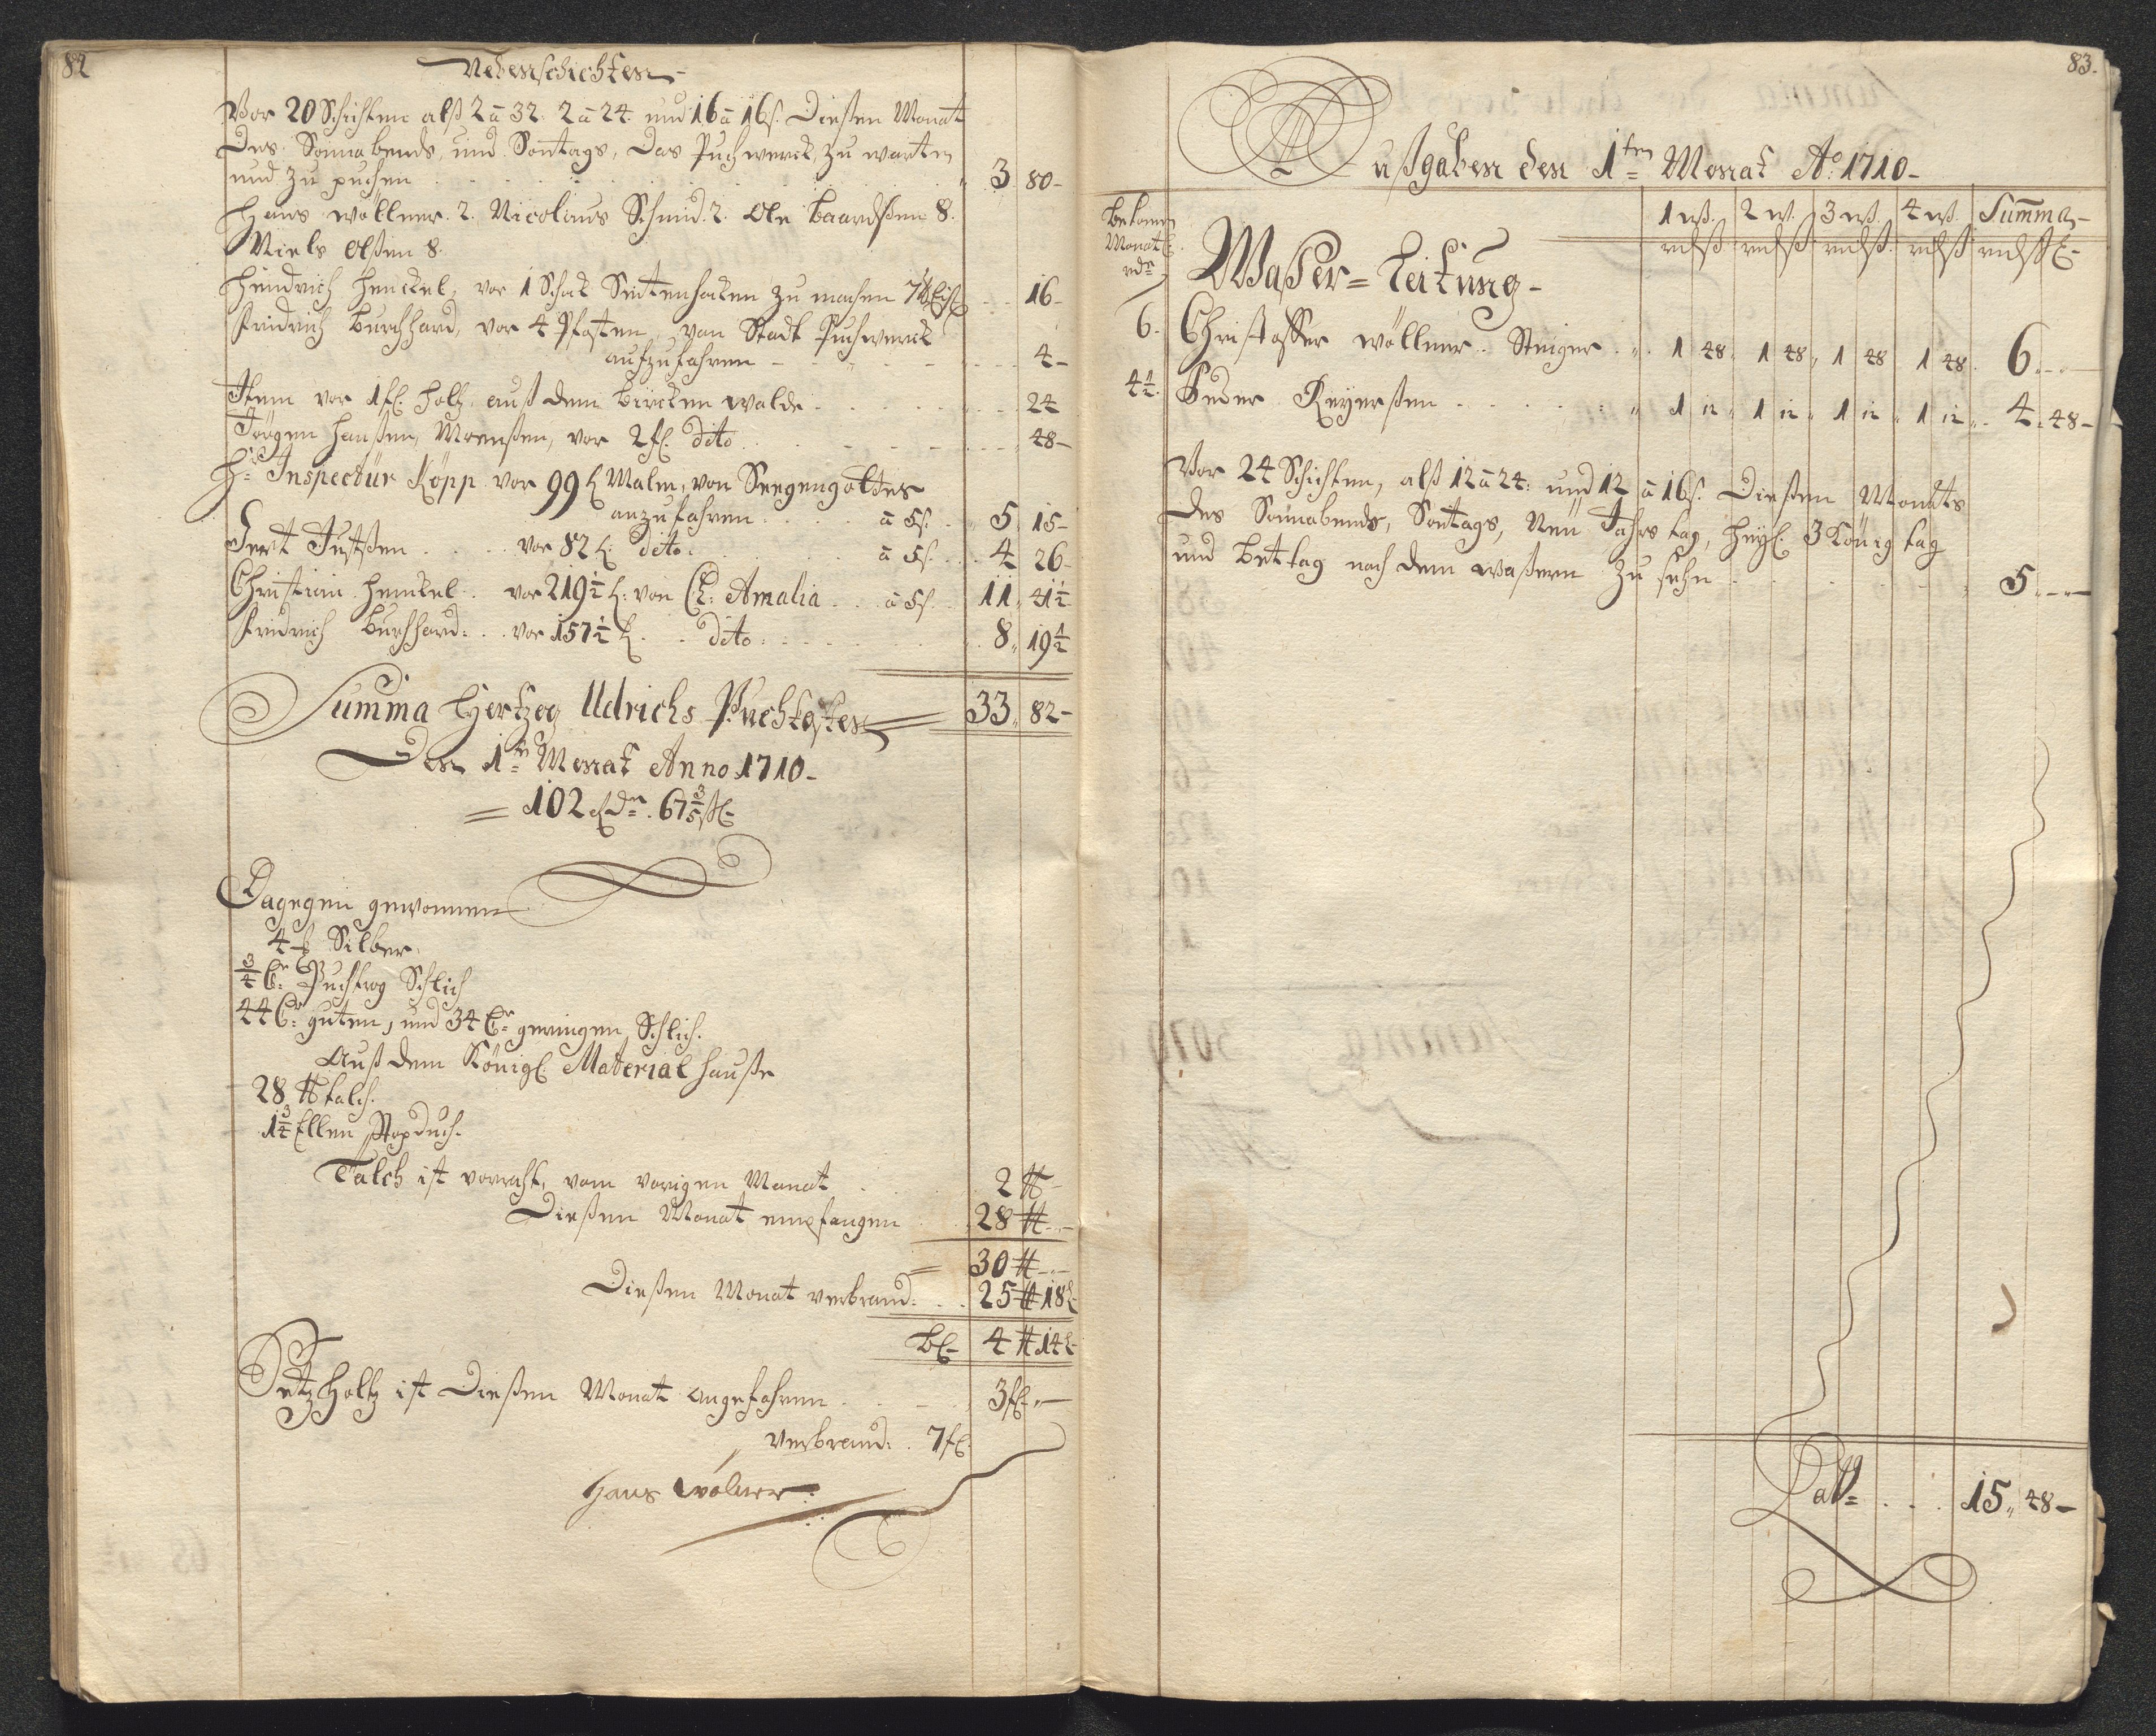 82
Nebenschichten
Vor 20 Schichten alß 2 â 32. 2 â 24. und 16 â 16 ß. Dießen Monat
Des Sonnabends, und Sontags, Das Puchwerck, zu warten
und zu puchen 3 80
Hans Wöllner. 2. Nicolaus Schmid. 2. Ole Baardßen 8.
Niels Olßen 8.
Heindrich Henckel, vor 1 Schock zu machen 16
Fridrich Burchhard, vor 4 Pfosten, von Stadt Puchwerck
aufzufahren 4
Item vor 1 fl. Holtz auß dem Bircken walde 24
Jörgen Hanßen, Moenßen, vor 2 fl. dito 48
H. Inspectür Köpp vor 99 Malm, von Seegengottes
anzufahren â 5 ß. 5 15
Gert Justßen vor 82 dito â 5 ß. 4 26
Christian Henckel vor 219½ von Ch: Amalia â 5 ß. 11 41½
Fridrich Burchhard vor 157½ dito 8 19½
Summa Hertzog Uldrichs Puchkosten 33 82
Den 1tn Monat Anno 1710
= 102 rd. 67 3/5 ß
Dagegen gewonnen
4 Silber
3/4 C. Puchtrog Schlich
44 C. guten, und 34 C. geringen Schlich.
Auß dem Königl. Material hauße
28 ℔ talch.
1 3/4 Ellen Stopduch.
Talch ist vorraht, vom vorigen Monat 2 ℔
Dießen Monat empfangen 28 ℔
= 30 ℔
Dießen Monat verbrand 25 ℔ 18
Bl. 4 ℔ 14
Setzholtz ist Dießen Monat angefahren 3 fl.
Verbrand 7 fl.
Hans Wölner
83.
Außgaben den 1ten Monat Ao. 1710
Bekomen
Monatl.
rdr
1 wß. 2 w. 3 wß. 4 wß. Summa
rdß rdß rdß rdß rdß
Waßer=Leitung
6. Christoffer Wöllner Steiger 1 48 1 48 1 48 1 48 6
4½. Peder Reyerßen 1 12 1 12 1 12 1 12 4 48
Vor 24 Schichten, alß 12 â 24. und 12 â 16 ß. Dießen Monats
Des Sonnabends, Sontags, Neü Jahrs tag, heyl. 3 König tag
und Bettag nach dem waßern zu sehn 5
Lat. 15 48